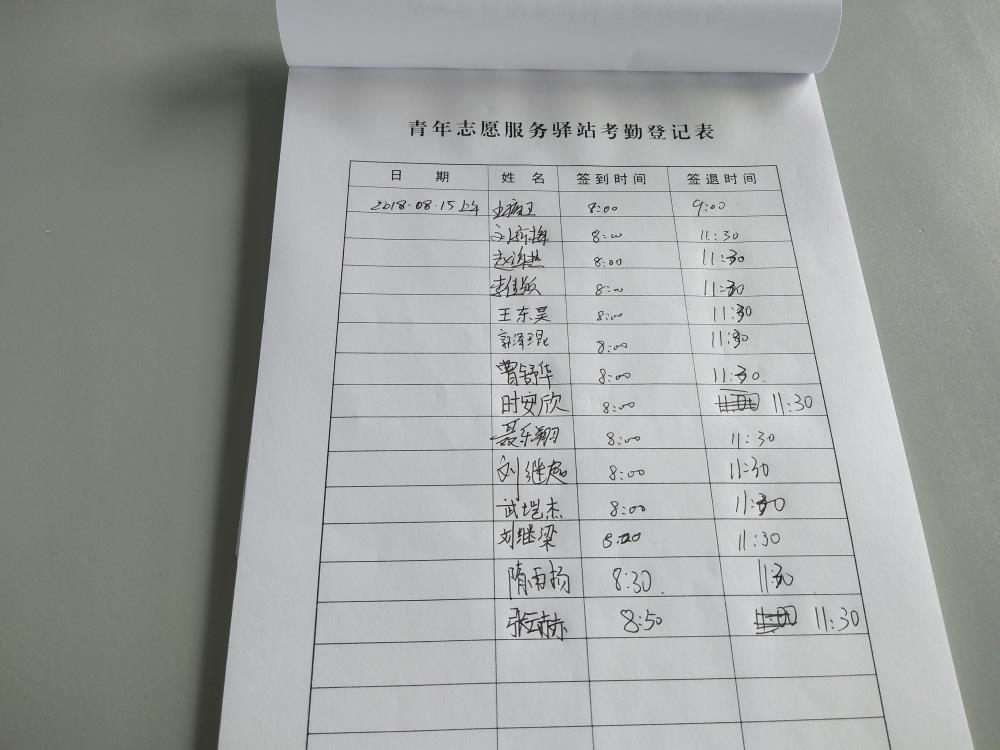 青年志愿服务驿站考勤登记表
日 期 姓 名 签到时间 签退时间
2018.08.15上午 8:00 9:00
8:00 11:30
8:00 11:30
李佳颖 8:00 11:30
王东昊 8:00 11:30
郭泽琨 8:00 11:30
曹舒华 8:00 11:30.
时安欣 8:00 11:30
聂乐翔 8:00 11:30
刘继 8:00 11:30
武垲杰 8:00 11:30
刘继梁 11:30
隋雨扬 8:30. 11:30
张 赫 8:50 11:30